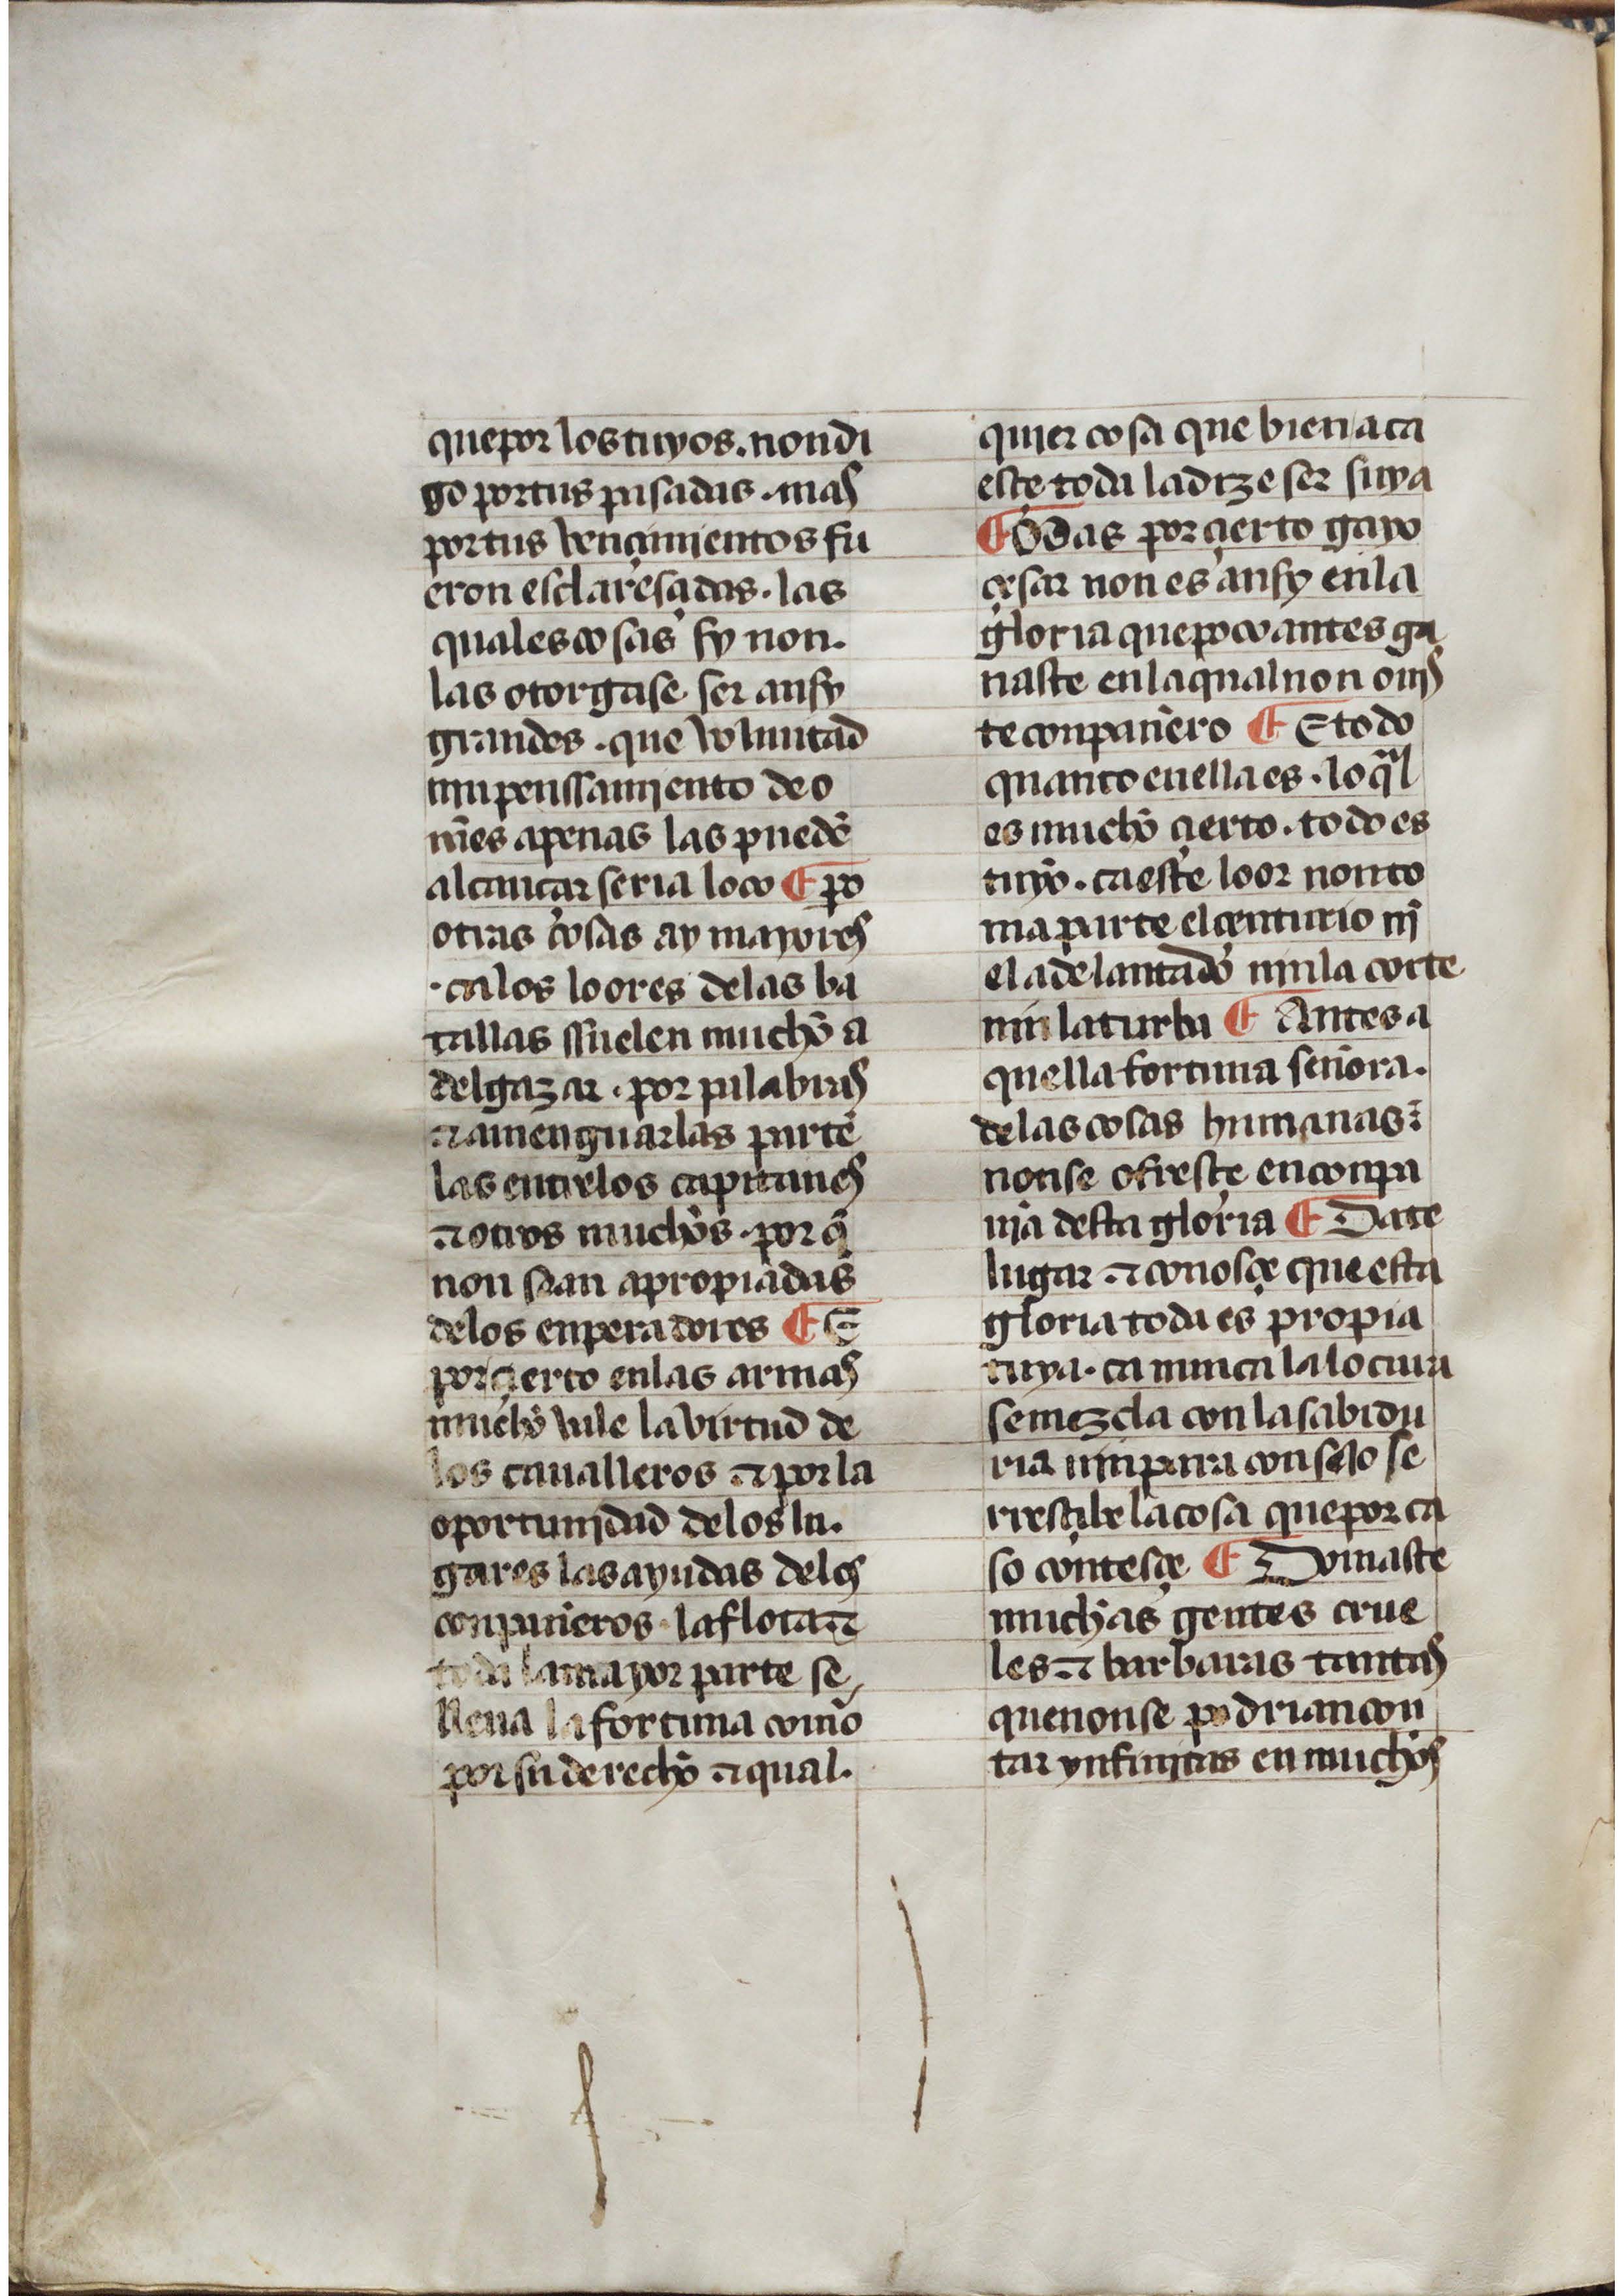 que por los tuyos. non di
go por tus pisadas. mas
por tus vençimientos fu
eron esclaresçadas. las
quales cosas sy non.
las otorgase ser ansy
grandes. que voluntad
nin penssamiento de o
mẽs apenas las puedẽ
alcançar seria loco ¶ ꝑo
otras cosas ay mayores
. ca los loores de las ba
tallas ssuelen mucho a
delgazar. por palabras
⁊ amenguar las parte
las entre los capitanes
⁊ otros muchos. por q̃
non sean apropiadas
de los enperadores ¶ E
por çierto en las armas
mucho vale la virtud de
los caualleros ⁊ por la
oportunidad de los lu.
gares las ayudas delos
conpañeros. la flota ⁊
toda la mayor parte se
llena la fortuna como
por su derecho ⁊ qual.
quier cosa que bien aca
esçe toda la dize ser suya
¶ Mas por çierto gayo
çesar non es ansy en la
gloria que poco antes ga
naste en la qual non ouis
te conpañero ¶ E todo
quanto en ella es. lo q̃l
es mucho çierto. todo es
tuyo. ca este loor non to
ma parte el çenturio nj̃
el adelantado nin la corte
nin la turba ¶ Antes a
quella fortuna señora.
de las cosas humanas:
non se ofresçe en conpa
ñja desta gloria ¶ Da te
lugar ⁊ conosçe que esta
gloria toda es propia
tuya. ca nunca la locura
se mezcla con la sabidu
ria nin para consejo se
rresçibe la cosa que por ca
so contesçe ¶ Domaste
muchas gentes crue
les ⁊ barbaras tantas
que non se podrian con
tar ynfinitas en muchos